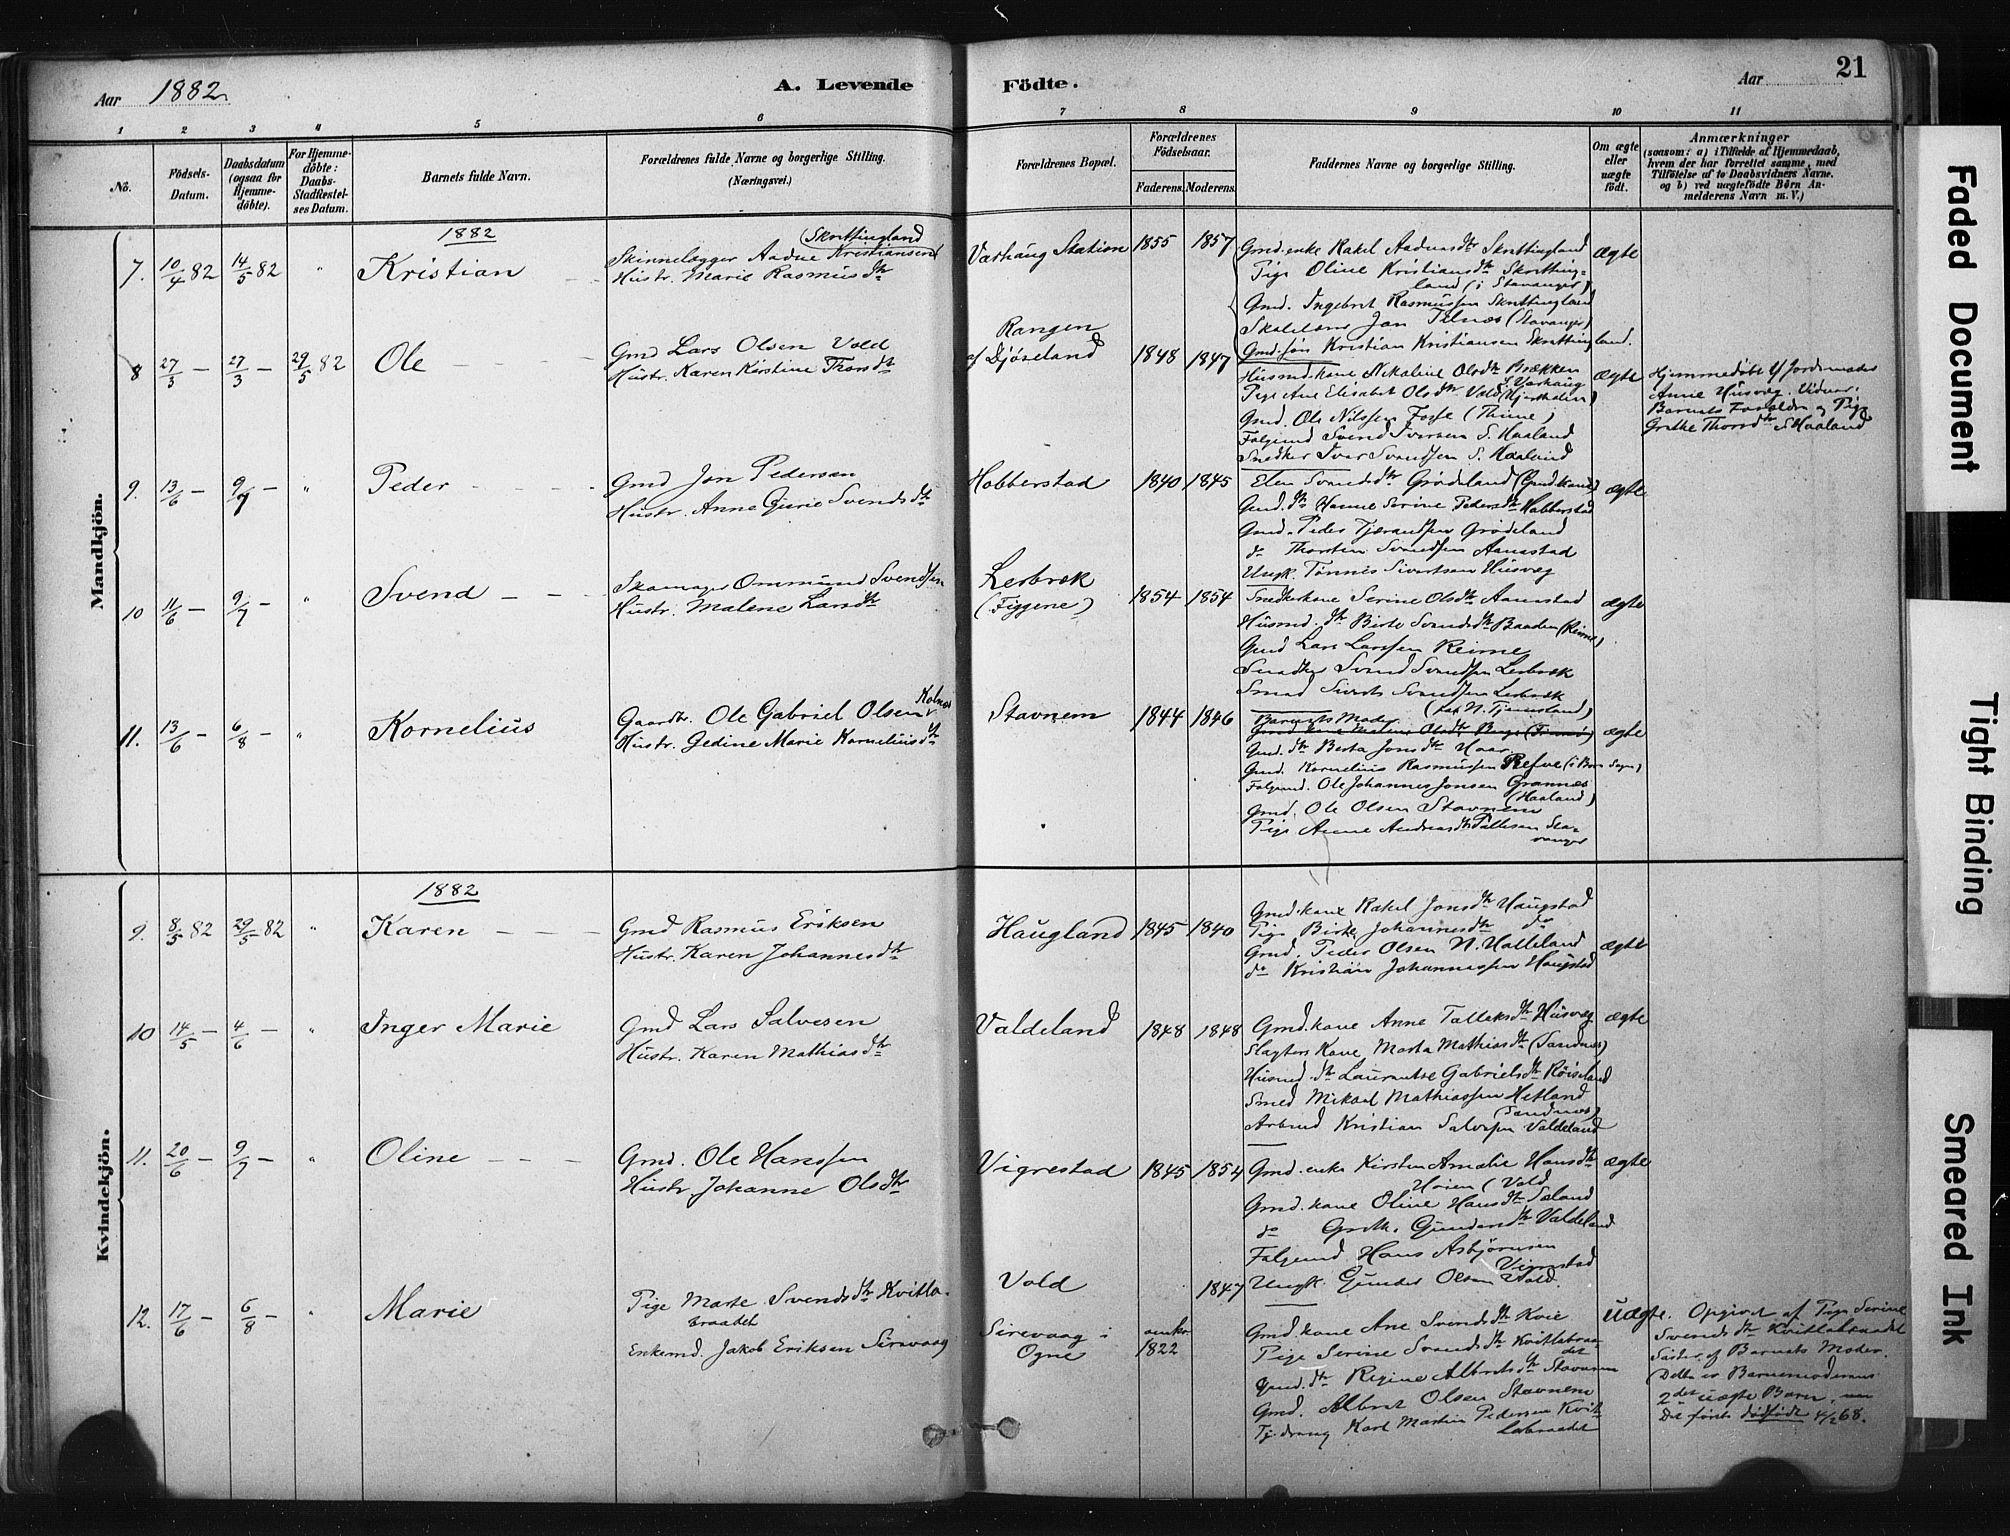 Aar 1882
A. Levende
Födte.
Aar
21
1 2 3 4 5 6 7 8 9 10 11
No.
Födsels-
Datum.
Daabsdatum
(ogsaa for
Hjemme-
döbte).
For Hjemme-
döbte:
Daabs-
Stadfæstel-
ses Datum.
Barnets fulde Navn.
Forældrenes fulde Navne og borgerlige Stilling.
(Næringsvei.)
Forældrenes Bopæl.
Forældrenes
Födselsaar.
Faderens. Moderens.
Faddernes Navne og borgerlige Stilling.
Om ægte
eller
uægte
födt.
Anmærkninger
(saasom: a) i Tilfælde af Hjemmedaab,
hvem der har forrettet samme, med
Tilföielse af to Daabsvidners Navne.
og b) ved uægtefödte Börn An-
melderens Navn m. V.)
Mandkjön.
1882
7. 10/4 82 14/5 82 " Kristian
(Skrettingland
Skinnelægger Aadne Kristiansen
Hustr. Marie Rasmusdtr
Varhaug Station 1855 1857
Gmd.enke Rakel Aadnesdtr Skrettingland
Pige Oline Kristiansdtr Skretting-
land (i Stavanger)
Gmd. Ingebret Rasmussen Skrettingland
Jon Tilnes (Stavanger)
Gmd.søn Kristian Kristiansen Skrettingland.
ægte
8 27/3 – 27/3 – 29/5 82 Ole
Gmd Lars Olsen Vold
Hustr. Karen Kirstine Thorsdtr
Rangen
af Djøseland 1848 1847
Husmd.kone Nikoline Olsdtr Brækken
S. Varhaug
Pige Ane Elisabet Olsdtr Vold
Gmd. Ole Nilssen Fosse (Thime)
Følgemd Svend Iversen S. Haaland
Snedker Ivar Svendsen S. Haaland
ægte
Hjemmedøbt af Jordemoder
Anne Husvæg. Vidner:
Barnets Forældre og Pige
Grethe Thorsdtr S Haaland
9. 13/6 – 9/7 – " Peder
Gmd Jon Pedersen
Hustr. Anne Gurie Svendsdtr
Hobberstad 1840 1845
Elen Svendsdtr Grødeland (Gmd kone)
Gmd.dtr Hanne Serine Pedersdtr Hobberstad
Gmd. Peder Tjerandsen Grødeland
do Thorsten Svendsen Aanestad
Ungk. Tønnes Sivertsen Husvæg
ægte
10 11/6 – 9/7 – " Svend
Skomager Ommund Svendsen
Hustr. Malene Larsdtr
Lerbrek
(Figgene) 1854 1854
Snedkerkone Serine Olsdtr Aanestad
Husmd.dtr Birte Svendsdtr Baaden (Reime)
Gmd Lars Larssen Reime
Snedker Svend Svendsen Lerbrek
Smed Sivert Svendsen Lerbrek
ægte
11. 13/6 – 6/8 – " Kornelius
Gaardbr. Ole Gabriel Olsen Kolnes
Hustr. Gedine Marie Korneliusdtr
Stavnem 1844 1846
Barnets Moder
Gmd.dtr Berta Jonsdtr Haar
Gmd. Kornelius Rasmussen Refve (i Bore Sogn)
Følgemd. Ole Johannes Jonsen Grannes
(Haaland)
Gmd. Ole Olsen Stavnem
Pige Anne Andreasdtr Pallesen Sta-
vanger
ægte
Kvindekjön.
1882
9. 8/5 82 29/5 82 " Karen
Gmd Rasmus Eriksen
Hustr. Karen Johannesdtr
Haugland 1845 1840
Gmd.kone Rakel Jonsdtr Haugstad
Pige Birte Johannesdtr do
Gmd. Peder Olsen N. Høtteland
do Kristian Johannessen Haugstad
ægte
10 14/5 – 4/6 – " Inger Marie
Gmd Lars Salvesen
Hustr. Karen Mathiasdtr
Valdeland 1848 1848
Gmd.kone Anne Tallaksdtr Husvæg
Slagters Kone Marta Mathiasdtr (Sandnes)
Husmd.dtr Laurentse Gabrielsdtr Røiseland
Smed Mikael Mathiassen Hetland
(Sandnes)
Arbmd Kristian Salvesen Valdeland
ægte
11. 20/6 – 9/7 – " Oline
Gmd. Ole Hanssen
Hustr Johanne Olsdtr
Vigrestad 1845 1854
Gmd.enke Kirsten Amalie Hansdtr
Høien (Vold
Gmd.kone Oline Hansdtr Søland
do Greth. Gundersdtr Valdeland
Følgemd Hans Asbjørnsen
Vigrestad
Ungk. Gunder Olsen Vold.
ægte
12. 17/6 – 6/8 – " Marie
Pige Marte Svendsdtr Kvitla-
braadet
Enkemd. Jakob Eriksen Sirevaag
Vold 1847
Sirevaag i
Ogne
omkr
1822
Gmd.kone Ane Svendsdtr Kvie
Pige Serine Svendsdtr Kvitlabraa-
det
Gmd.dtr Regine Albretsdtr Stavnem
Gmd. Albret Olsen Stavnem
Tj.dreng Karl Martin Pedersen Kvit-
labraadet
uægte.
Opgivet af Pige Serine
Svendsdtr Kvitlabraadet
Søster af Barnets Moder.
Dette er Barnemoderens
2det uægte Barn
Det første dødfødt 4/2 68.
Faded Document
Tight Binding
Smeared Ink